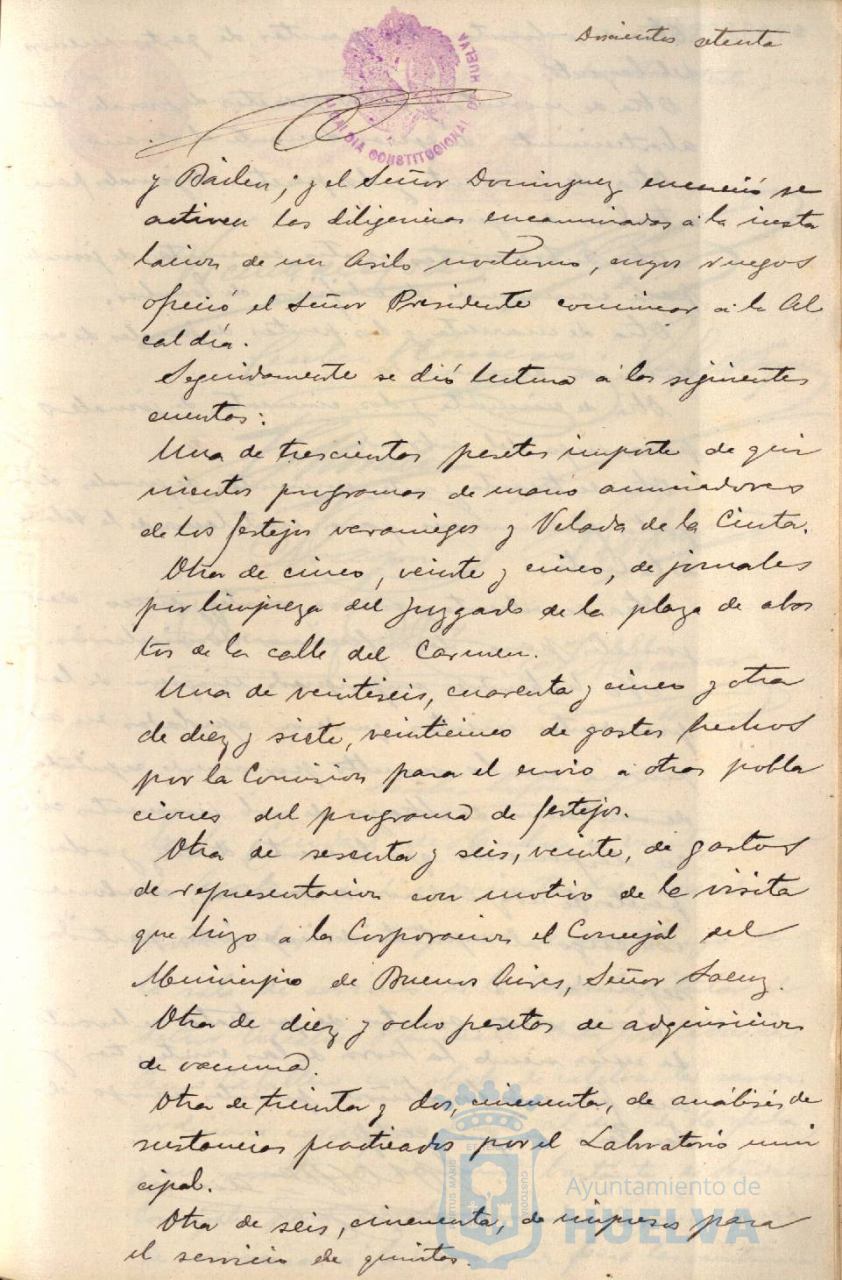 Doscientos setenta
ALCALDIA CONSTITUCIONAL DE HUELVA
y Bailen; y el Señor Dominguez, se
activen las diligencias encaminadas á la insta
lacion de un Asilo nocturno, cuyos ruegos
ofreció el Señor Presidente comunicar á la Al
caldía.
Seguidamente se dió lectura á las siguientes
cuentas:
Una de trescientas pesetas importe de qui
nientos programas de mano anunciadores
de los festejos veraniegos y Velada de la Cinta.
Otra de cinco, veinte y cinco, de jornales
por limpieza del juzgado de la plaza de abas
tos de la calle del Carmen.
Una de veintiseis, cuarenta y cinco y otra
de diez y siete, veinticinco de gastos hechos
por la Comision para el envio á otras pobla
ciones del programa de festejos.
Otra de sesenta y seis, veinte, de gastos
de representacion con motivo de la visita
que hizo á la Corporacion el Concejal del
Municipio de Buenos Aires, Señor Saenz.
Otra de diez y ocho pesetas de adquisicion
de vacuna.
Otra de treinta y dos, cincuenta, de análisis de
sustancias practicados por el Laboratorio muni
cipal.
Otra de seis, cincuenta, de impresos para
el servicio de quintas.
Ayuntamiento de
HUELVA